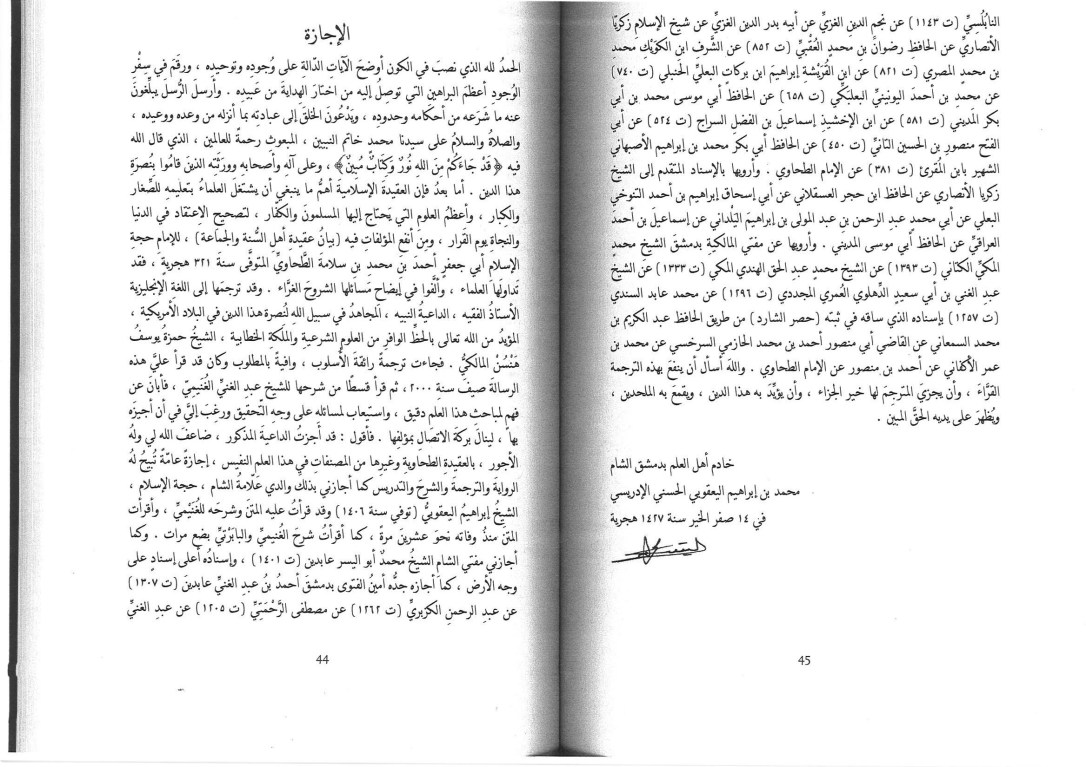 الإجازة
الحمدُ لله الذي نصبَ في الكون أوضحَ الآيَات الدالةِ على وُجودِه وتوحيدِه ، ورقمَ في سِفْرِ
الوُجودِ أعظمَ البراهينِ التي توصِلُ إليه من اختارَ الهدايةَ من عَبيدِه . وأرسلَ الرُّسلَ يبلِّغونَ
عنه ما شرَعه من أحكامِه وحدودِه ، ويَدْعُونَ الخلقَ إلى عبادتِه بما أنزله من وعده ووعيده ،
والصلاةُ والسلامُ على سيدنا محمد خاتم النبيين ، المبعوثِ رحمةً للعالمين ، الذي قال الله
فيه ﴿قَدْ جَاءَكُمْ مِنَ اللهِ نُورٌ وَكِتَابٌ مُبِينٌ﴾ ، وعلى آلِه وأصحابِه وورَثَتِه الذينَ قامُوا بنُصرَةِ
هذا الدين . أما بعدُ فإن العقيدةَ الإسلاميةَ أهمُّ ما ينبغي أن يشتغلَ العلماءُ بتعليمِه للصِّغار
والكِبار ، وأعظمُ العلومِ التي يَحتاج إليها المسلمونَ والكفّار ، لتصحيحِ الاعتقاد في الدنيا
والنجاةِ يومِ القَرار ، ومِن أنفعِ المؤلفاتِ فيه (بيانُ عقيدةِ أهل السُّنة والجماعة) ، للإمامِ حجةِ
الإسلام أبي جعفرٍ أحمدَ بن محمدِ بن سلامةَ الطَّحاويِّ المتوفَّى سنةَ ٣٢١ هجرية ، فقد
تداولَها العلماء ، وألَّفوا في إيضاحِ مَسائلها الشروحَ الغرَّاء . وقد ترجمَها إلى اللغةِ الإنجليزية
الأستاذُ الفقيه ، الداعيةُ النبيه ، المجاهدُ في سبيل اللهِ لنُصرة هذا الدين في البلاد الأمريكية ،
المؤيدُ من الله تعالى بالحظِّ الوافر من العلوم الشرعيةِ والملَكةِ الخطابية ، الشيخُ حمزةُ يوسفُ
هَنسُنْ المالكيُّ . فجاءت ترجمةً رائقةَ الأسلوب ، وافيةً بالمطلوب وكان قد قرأ عليَّ هذه
الرسالةَ صيفَ سنةِ ٢٠٠٠ ، ثم قرأ قسطًا من شرحها للشيخ عبدِ الغنيِّ الغُنَيميِّ ، فأبانَ عن
فهمٍ لمباحثِ هذا العلمِ دقيق ، واستيعابٍ لمسائله على وجهِ التّحقيق ورغبَ إليَّ في أن أجيزَه
بها ، لينالَ بركةَ الاتصَالِ بمؤلِفها . فأقول : قد أجزتُ الداعيةَ المذكور ، ضاعفَ الله لي ولهُ
الأجور ، بالعقيدةِ الطحاويةِ وغيرِها من المصنفاتِ في هذا العلمِ النفيس ، إجازةً عامّةً تُبيحُ لهُ
الروايةَ والترجمةَ والشرحَ والتدريس كما أجازني بذلك والدي عَلّامةُ الشام ، حجة الإسلام ،
الشيخُ إبراهيمُ اليعقوبيُّ (توفي سنة ١٤٠٦) وقد قرأتُ عليه المتنَ وشرحَه للغُنَيميِّ ، وأقرأت
المتنَ منذُ وفاتِه نحوَ عشرينَ مرةً ، كما أقرأتُ شرحَ الغُنيميِّ والبابَرْتيِّ بضعَ مرات . وكما
أجازني مفتي الشامِ الشيخُ محمدٌ أبو اليسر عابدين (ت ١٤٠١) ، وإسنادُه أعلى إسنادٍ على
وجه الأرض ، كما أجازه جدُّه أمينُ الفتوى بدمشقَ أحمدُ بنُ عبدِ الغنيِّ عابدينَ (ت ١٣٠٧)
عن عبدِ الرحمنِ الكزبريِّ (ت ١٢٦٢) عن مصطفى الرَّحْمَتيِّ (ت ١٢٠٥) عن عبدِ الغنيِّ
44
النابُلُسيِّ (ت ١١٤٣) عن نجمِ الدينِ الغزيِّ عن أبيه بدرِ الدين الغزيِّ عن شيخِ الإسلام زكريّا
الأنصاريِّ عن الحافظِ رضوانَ بن محمدٍ العُقْبيِّ (ت ٨٥٢) عن الشَّرفِ ابن الكُوَيْكِ محمد
بن محمدٍ المصري (ت ٨٢١) عن ابن القُرَيْشةِ إبراهيمَ ابن بركاتٍ البعليِّ الحنبلي (ت ٧٤٠)
عن محمدِ بن أحمدَ اليونينيِّ البعلبَكّي (ت ٦٥٨) عن الحافظ أبي موسى محمد بن أبي
بكرٍ المَديني (ت ٥٨١) عن ابن الإخشيذِ إسماعيلَ بن الفضل السراج (ت ٥٢٤) عن أبي
الفتح منصورِ بن الحسين التانيِّ (ت ٤٥٠) عن الحافظ أبي بكرَ محمد بن إبراهيم الأصبهاني
الشهير بابن المُقرئ (ت ٣٨١) عن الإمام الطحاوي . وأرويها بالإسناد المتقدم إلى الشيخ
زكريا الأنصاري عن الحافظ ابن حجر العسقلاني عن أبي إسحاق إبراهيم بن أحمد التنوخي
البعلي عن أبي محمدٍ عبد الرحمن بن عبد المولى بن إبراهيمَ اليَلْداني عن إسماعيلَ بن أحمدَ
العراقيِّ عن الحافظ أبي موسى المديني . وأرويها عن مفتي المالكيةِ بدمشقَ الشيخ محمدٍ
المكيِّ الكتاني (ت ١٣٩٣) عن الشيخ محمد عبدِ الحق الهندي المكي (ت ١٣٣٣) عن الشيخ
عبد الغني بن أبي سعيدٍ الدِّهلوي العُمري المجددي (ت ١٢٩٦) عن محمد عابد السندي
(ت ١٢٥٧) بإسناده الذي ساقه في ثبته (حصر الشارد) من طريق الحافظ عبد الكريم بن
محمد السمعاني عن القاضي أبي منصور أحمد بن محمد الحازمي السرخسي عن محمد بن
عمر الأكفاني عن أحمد بن منصور عن الإمام الطحاوي . واللهَ أسأل أن ينفعَ بهذه الترجمة
القرّاءَ ، وأن يجزيَ المترجِمَ لها خير الجزاء ، وأن يؤيِّدَ به هذا الدين ، ويقمعَ به الملحدين ،
ويُظهرَ على يديه الحقَّ المبين .
خادم أهل العلم بدمشق الشام
محمد بن إبراهيم اليعقوبي الحسني الإدريسي
في ١٤ صفر الخير سنة ١٤٢٧ هجرية
45